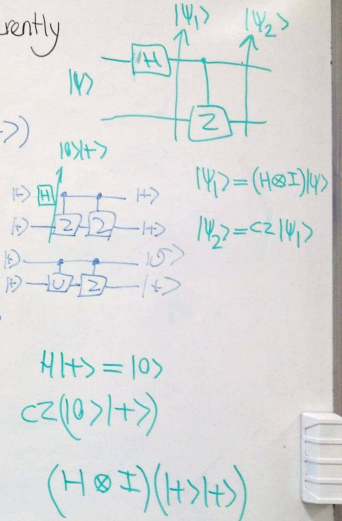 rently
|Ψ₁⟩ |Ψ₂⟩
H
|Ψ⟩
Z
⟩)
|0⟩|+⟩
|+⟩ H |+⟩
|+⟩ Z Z |+⟩
|+⟩
|+⟩ U Z |+⟩
|Ψ₁⟩=(H⊗I)|Ψ⟩
|Ψ₂⟩=CZ|Ψ₁⟩
H|+⟩=|0⟩
CZ(|0⟩|+⟩)
(H⊗I)(|+⟩|+⟩)